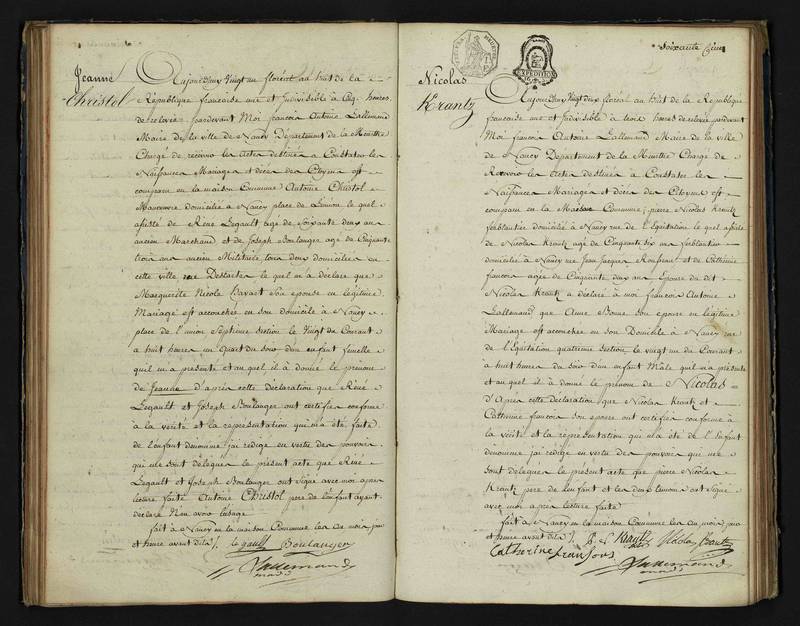 Jeanne
Christol
Aujourd'huy Vingt un floreal an huit de la
République francoise une et Indivisible à Cinq heures
de relevée pardevant Moi francois Antoine Lallemand
Maire de la ville de Nancy Departement de la Meurthe
Chargé de recevoir les actes destinés a Constater les
Naissances Mariages et décès des Citoyens est
comparu en la maison Commune Antoine Christol
Manoeuvre domicilié a Nancy place de L'union le quel
assisté de René Legault agé de Soixante deux ans
ancien Marchand et de Joseph Boulanger age de Cinquante
trois ans ancien Militaire tous deux domiciliés en
cette ville rue le quel m'a déclaré que
Marguerite Nicole Son epouse en legitime
Mariage est accouchée en son domicile à Nancy
place de l'union Septieme Section le Vingt du Courant
a huit heures un quart du soir d'un enfant femelle
quel m'a presenté et au quel il à donné le prenom
de Jeanne d'après cette déclaration que René
Legault et Joseph Boulanger ont certifiée conforme
à la vérité et la représentation qui m'a été faite
de l'enfant denommé j'ai redigé en vertu des pouvoirs
qui me sont délegués le présent acte que René
Legault et Joseph Boulanger ont Signé avec moi après
lecture faite Antoine Christol pere de l'enfant ayant
declaré N'en avoir l'usage
fait à Nancy en la maison Commune les an mois jour
et heure avant dits
le gault Boulanger
Lallemand
Soixante Cinq
EXPEDITION
Nicolas
Krantz
Aujourd'huy Vingt deux floreal an huit de la Republique
francaise une et Indivisible à trois heures de relevée pardevant
Moi francois Antoine Lallemand Maire de la ville
de Nancy Departement de la Meurthe Chargé de
Recevoir les actes Destinés à Constater les
Naissances Mariages et décès des Citoyens est
comparu en la Maison Commune, pierre Nicolas Krantz
ferblantier domicilié à Nancy rue de l'Equitation le quel assisté
de Nicolas Krantz agé de Cinquante six ans ferblantier
domicilié à Nancy rue Jean Jacques Rousseau et de Catherine
francois agée de Cinquante deux ans Epouse du dit
Nicolas Krantz a déclaré à moi francois Antoine
Lallemand que Anne Bonne Son epouse en legitime
Mariage est accouchée en son Domicile à Nancy rue
de l'Equitation quatrieme Section le vingt un du Courant
à huit heures du soir d'un enfant Mâle quel m'a presenté
et au quel il à donné le prénom de Nicolas
D'Après cette déclaration que Nicolas Krantz et
Catherine francois son epouse ont certifiée conforme à
la vérité et la représentation qui m'a été de l'Enfant
denommé j'ai redigé en vertu des pouvoirs qui me
sont delegués le présent acte que pierre Nicolas
Krantz pere de l'enfant et les deux temoins ont signé
avec moi après lecture faite
fait à Nancy en la maison Commune les an mois jour
et heure avant dits P. N. Krantz Nicolas Krantz
Catherine fransois
Lallemand